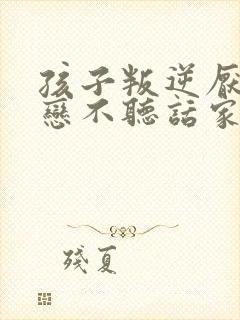 孩子叛逆厭
戀不聽話家
殘夏